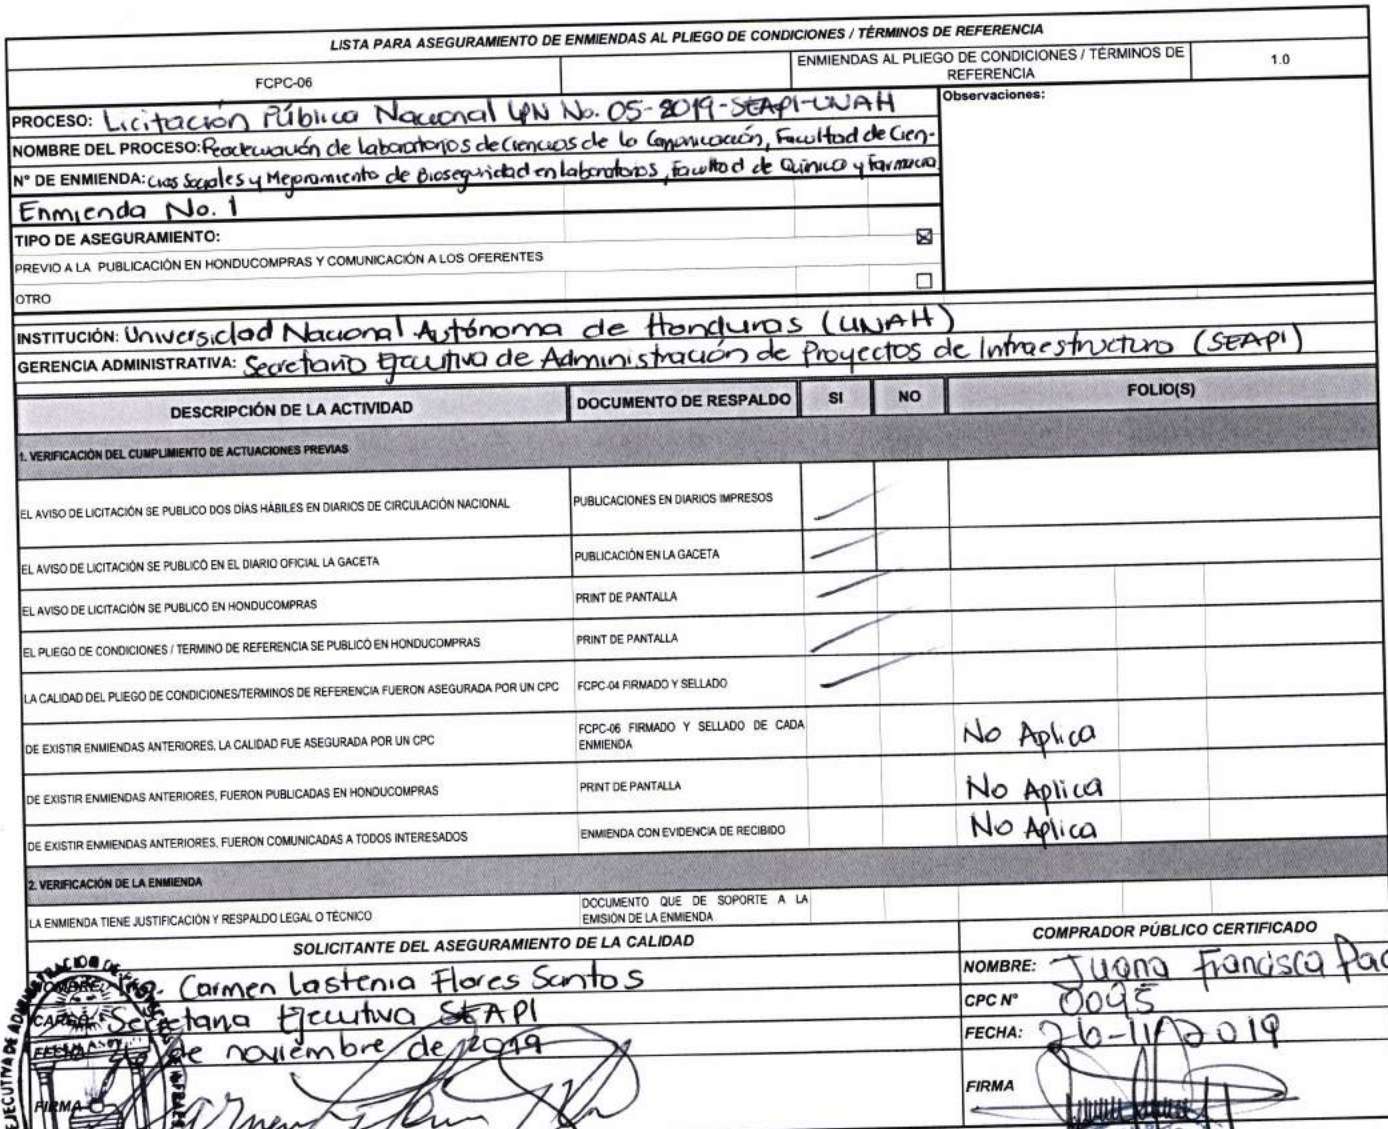 LISTA PARA ASEGURAMIENTO DE ENMIENDAS AL PLIEGO DE CONDICIONES / TÉRMINOS DE REFERENCIA
FCPC-06
ENMIENDAS AL PLIEGO DE CONDICIONES / TÉRMINOS DE REFERENCIA
1.0
PROCESO: Licitación Pública Nacional LPN No. 05-2019-SEAPI-UNAH
Observaciones:
NOMBRE DEL PROCESO: Readecuación de laboratorios de Ciencias de la Comunicación, Facultad de Cien-
N° DE ENMIENDA: cias Sociales y Mejoramiento de Bioseguridad en laboratorios, Facultad de Química y Farmacia
Enmienda No. 1
TIPO DE ASEGURAMIENTO:
PREVIO A LA PUBLICACIÓN EN HONDUCOMPRAS Y COMUNICACIÓN A LOS OFERENTES
OTRO
INSTITUCIÓN: Universidad Nacional Autónoma de Honduras (UNAH)
GERENCIA ADMINISTRATIVA: Secretaria Ejecutiva de Administración de Proyectos de Infraestructura (SEAPI)
DESCRIPCIÓN DE LA ACTIVIDAD DOCUMENTO DE RESPALDO SI NO FOLIO(S)
1. VERIFICACIÓN DEL CUMPLIMIENTO DE ACTUACIONES PREVIAS
EL AVISO DE LICITACIÓN SE PUBLICO DOS DÍAS HÁBILES EN DIARIOS DE CIRCULACIÓN NACIONAL PUBLICACIONES EN DIARIOS IMPRESOS
EL AVISO DE LICITACIÓN SE PUBLICÓ EN EL DIARIO OFICIAL LA GACETA PUBLICACIÓN EN LA GACETA
EL AVISO DE LICITACIÓN SE PUBLICO EN HONDUCOMPRAS PRINT DE PANTALLA
EL PLIEGO DE CONDICIONES / TERMINO DE REFERENCIA SE PUBLICÓ EN HONDUCOMPRAS PRINT DE PANTALLA
LA CALIDAD DEL PLIEGO DE CONDICIONES/TERMINOS DE REFERENCIA FUERON ASEGURADA POR UN CPC FCPC-04 FIRMADO Y SELLADO
DE EXISTIR ENMIENDAS ANTERIORES, LA CALIDAD FUE ASEGURADA POR UN CPC FCPC-06 FIRMADO Y SELLADO DE CADA ENMIENDA No Aplica
DE EXISTIR ENMIENDAS ANTERIORES, FUERON PUBLICADAS EN HONDUCOMPRAS PRINT DE PANTALLA No Aplica
DE EXISTIR ENMIENDAS ANTERIORES, FUERON COMUNICADAS A TODOS INTERESADOS ENMIENDA CON EVIDENCIA DE RECIBIDO No Aplica
2. VERIFICACIÓN DE LA ENMIENDA
LA ENMIENDA TIENE JUSTIFICACIÓN Y RESPALDO LEGAL O TÉCNICO DOCUMENTO QUE DE SOPORTE A LA EMISIÓN DE LA ENMIENDA
SOLICITANTE DEL ASEGURAMIENTO DE LA CALIDAD
NOMBRE: Ing. Carmen Lastenia Flores Santos
CARGO: Secretaria Ejecutiva SEAPI
FECHA: de noviembre de 2019
FIRMA
COMPRADOR PÚBLICO CERTIFICADO
NOMBRE: Juana Francisca
CPC N° 0095
FECHA: 26-11-2019
FIRMA